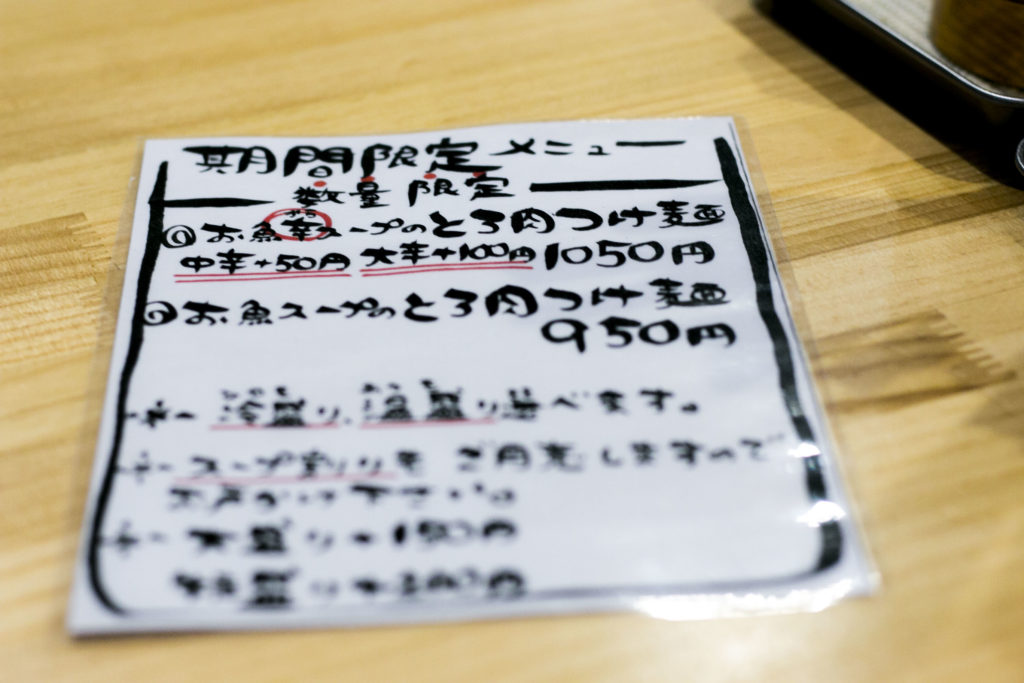 期間限定メニュー
数量限定
①お魚辛スープのとろ肉つけ麺
中辛+50円 大辛+100円 1050円
②お魚スープのとろ肉つけ麺
950円
冷盛り、温盛り選べます。
スープ割りもご用意しますので
お声かけ下さい。
大盛り+
盛り+